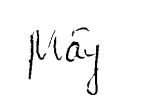 Mây